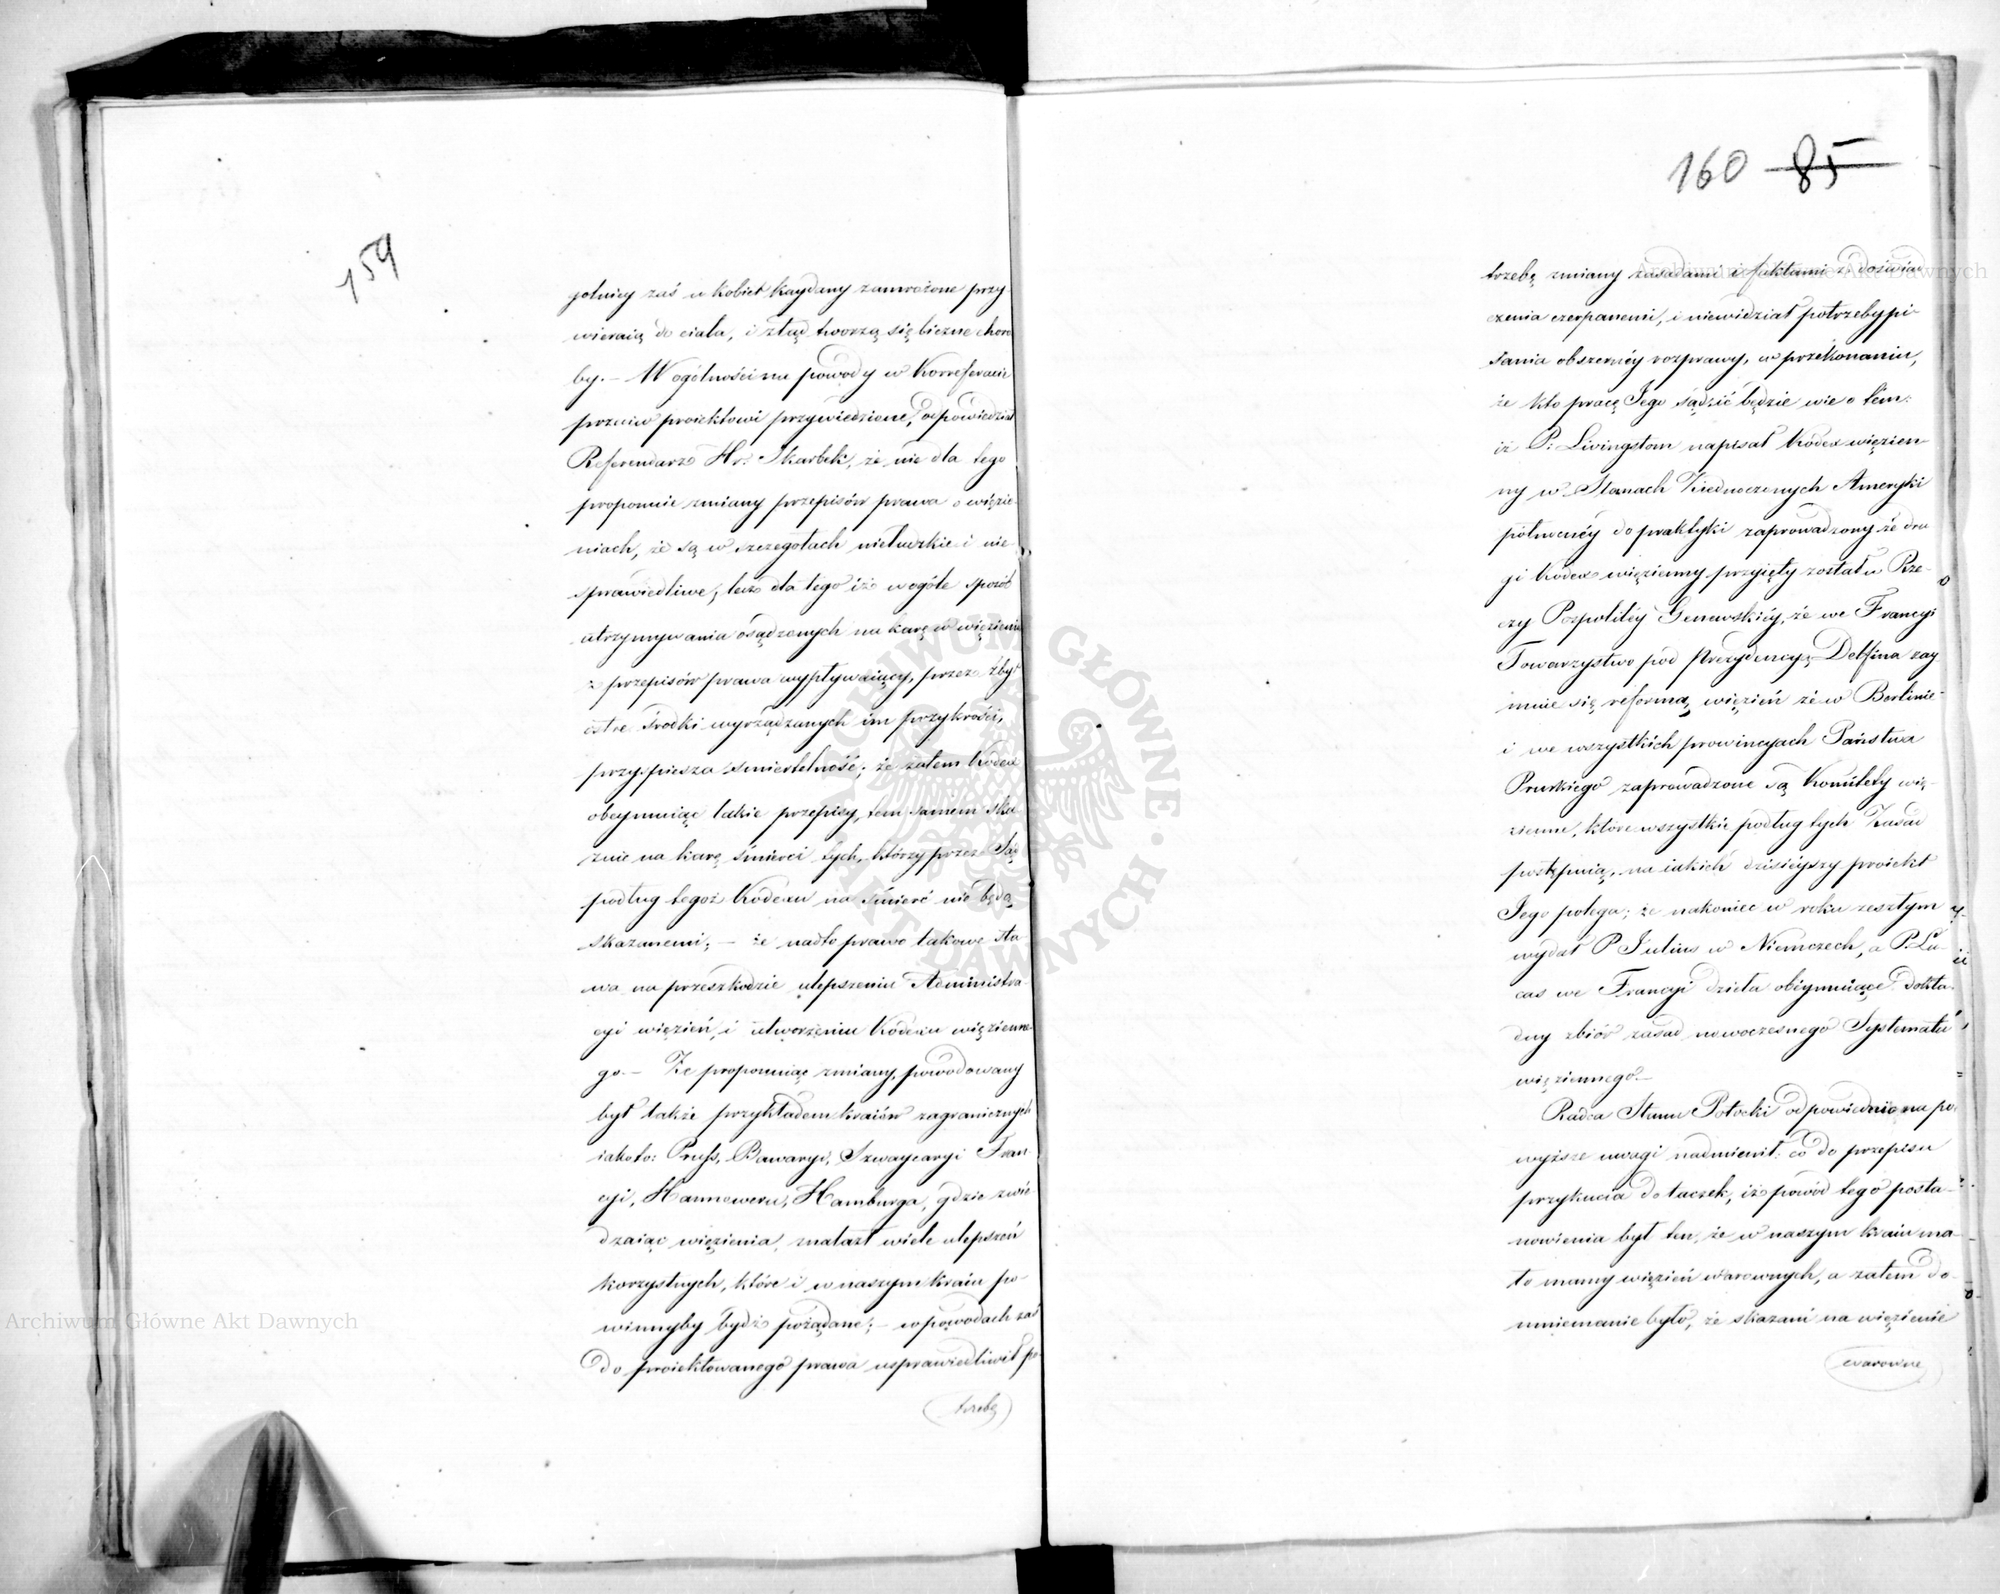 159
gólniey zaś u kobiet kaydany zamrożone przy
wieraią do ciała, i ztąd tworzą się liczne choro
by. – W ogólności na powody w Korreferacie
przeciw proiektowi przywiedzione, odpowiedział
Referendarz Hr: Skarbek, że nie dla tego
proponuie zmiany przepisów prawa o więzie-
niach, że są w szczegółach nieludzkie i nie-
sprawiedliwe, lecz dla tego iż w ogóle sposób
utrzymywania osądzonych na karę w więzieniu
z przepisów prawa wypływaiący, przez zbyt
ostre środki wyrządzanych im przykrości,
przyspiesza śmiertelność; że zatem Kodex
obeymuiąc takie przepisy, tem samem ska
zuie na karę śmierci tych, którzy przez Sąd
podług tegoż Kodexu na śmierć nie będą
skazanemi; – że nadto prawo takowe sta
wa na przeszkodzie ulepszeniu Administra-
cyi więzień, i utworzeniu Kodexu więzienne-
go. – Że proponuiąc zmiany, powodowany
był także przykładem kraiów zagranicznych
iakoto: Pruss, Bawaryi, Szwaycaryi Fran
cyi, Hannoweru, Hamburga, gdzie zwie-
dzaiąc więzienia, znalazł wiele ulepszeń
korzystnych, które i w naszym kraiu po-
winnyby bydź pożądane; – w powodach zaś
do proiektowanego prawa usprawiedliwił po-
trzebę
160 85
trzebę zmiany zasadami i faktami z doświad
czenia czerpanemi, i niewidział potrzeby pi-
sania obszerney rozprawy, w przekonaniu,
że kto pracę Jego sądzić będzie wie o tem:
iż P: Livingstom napisał Kodex więzien-
ny w Stanach Ziednoczonych Ameryki
północnéy do praktyki zaprowadzony że dru
gi Kodex więzienny przyięty został w Rze-
czy Pospolitéy Genewskiéy, że we Francyi
Towarzystwo pod Prezydencyą Delfina zay
muie się reformą więzień że w Berlinie
i we wszystkich prowincyach Państwa
Pruskiego zaprowadzone są Komitety wię-
zienne, które wszystkie podług tych Zasad
postępuią, na iakich dzisiéyszy proiekt
Jego polega; że nakoniec w roku zeszłym
wydał P. Julius w Niemczech, a P. Lu-
cas we Francyi dzieła obéymuiące dokła-
dny zbiór zasad nowoczesnego Systematu
więziennego. –
Radca Stanu Potocki odpowiednio na po-
wyższe uwagi nadmienił: co do przepisu
przykucia do taczek, iż powód tego posta-
nowienia był ten, że w naszym kraiu ma-
ło mamy więzień warownych, a zatem do-
mniemanie było, że skazani na więzienie
warowne
Archiwum Główne Akt Dawnych
Archiwum Główne Akt Dawnych
ARCHIWUM GŁÓWNE · AKT DAWNYCH ·